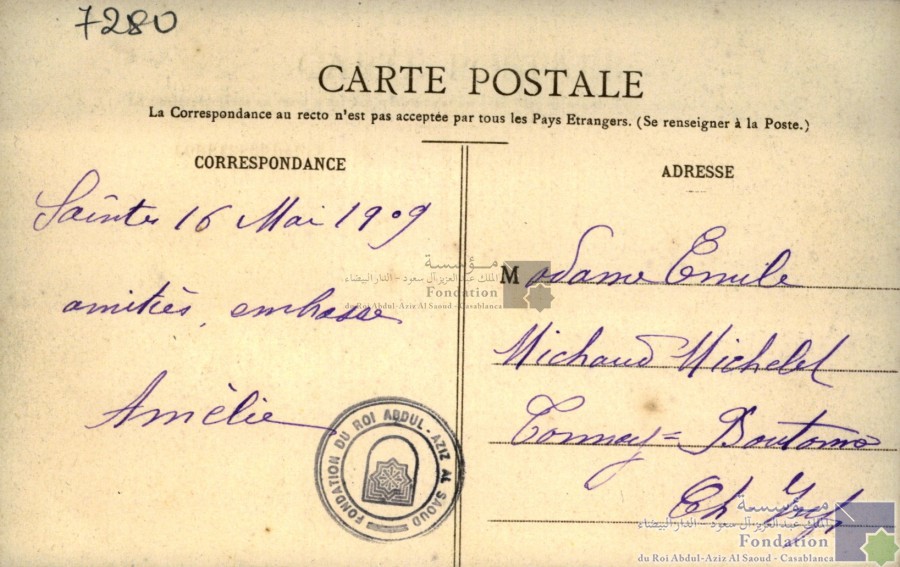 7280
CARTE POSTALE
La Correspondance au recto n'est pas acceptée par tous les Pays Etrangers. (Se renseigner à la Poste.)
CORRESPONDANCE
Saintes 16 Mai 1909
amitiés, embrasse
Amélie
ADRESSE
Madame Emile
Michaud Michelet
Tonnay = Boutonne
Ch Inf
FONDATION DU ROI ABDUL-AZIZ AL SAOUD
مؤسسة
الملك عبد العزيز آل سعود - الدار البيضاء
Fondation
du Roi Abdul-Aziz Al Saoud - Casablanca
مؤسسة
الملك عبد العزيز آل سعود - الدار البيضاء
Fondation
du Roi Abdul-Aziz Al Saoud - Casablanca